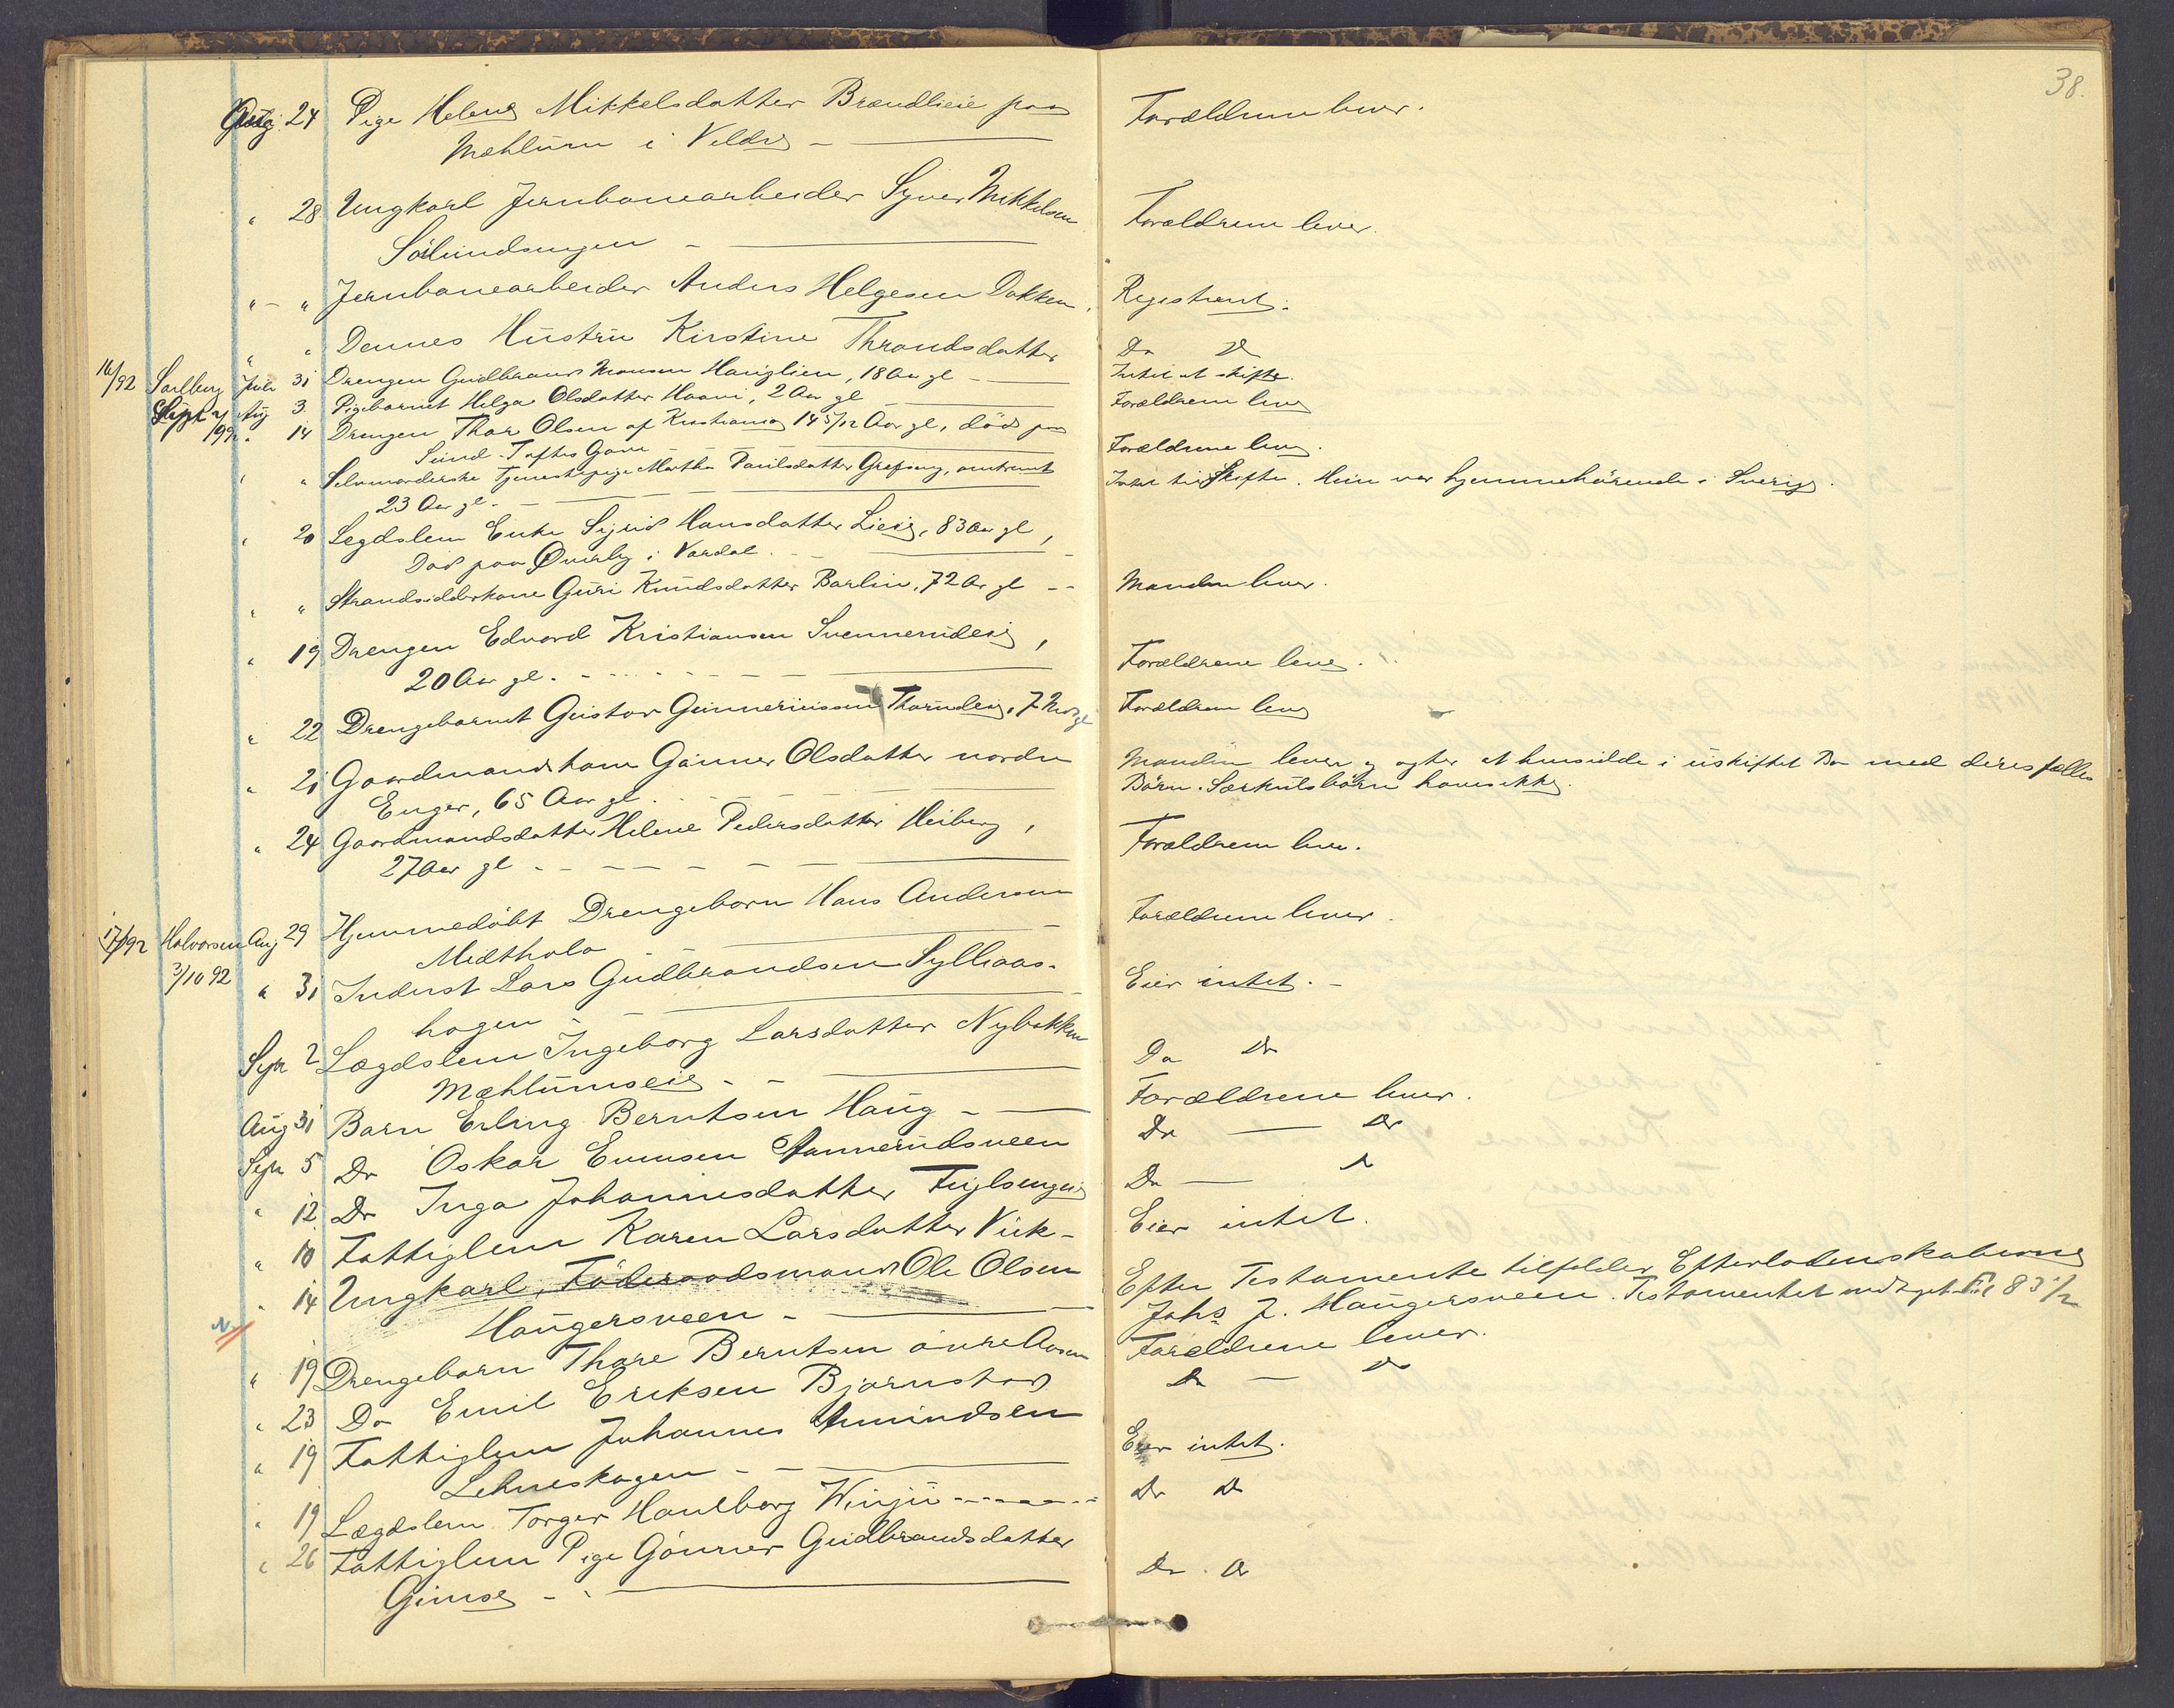 38.
Aug. 24 Pige Helene Mikkelsdatter Brændlieie paa Forældrene lever.
Mæhlum i Veldre -
" 28 Ungkarl Jernbanearbeider Syver Mikkelsen Forældrene lever.
Sölundsengen -
" - " Jernbanearbeider Anders Helgesen Dokken. Registreret.
" " Dennes Hustru Kirstine Throndsdatter Do Do
16/92 Juli 31 Drengen Gudbrand Monsen Hauglien, 18 Aar gl - Intet at skifte.
Sept Aug 3 Pigebarnet Helga Olsdatter Haavi, 2 Aar gl Forældrene lever
/92. " 14 Drengen Thor Olsen af Kristiania 14 5/12 Aar gl, död paa Forældrene lever.
Sund-Toftes Gave
" " Selvmorderske Tjenestepige Martha Paulsdatter Grefseng, omtrent Intet til Skifte. Hun var hjemmehörende i Sverige.
23 Aar gl. -
" 20 Legdslem Enke Sigrid Hansdatter Lieie, 83 Aar gl,
Död paa Överby i Vardal.
" " Strandsidderkone Guri Knudsdatter Barlin, 72 Ar gl -- Manden lever.
" 19 Drengen Edvard Kristiansen Svennerudeie, Forældrene lever.
20 Aar gl.
" 22 Drengebarnet Gustav Gunneriussen Thorudeie, 7 Mdr gl Forældrene lever
" 21 Gaardmandskone Gönner Olsdatter nordre Manden lever og agter at hensidde i uskiftet Bo med deres fælles
Enger, 65 Aar gl. Börn. Særkulsbörn haves ikke.
" 24 Gaardmandsdatter Helene Pedersdatter Heiberg, Forældrene lever.
27 Aar gl
17/92 Halvorsen Aug 29 Hjemmedöbt Drengebarn Hans Andersen Forældrene lever.
3/10 92 Midthola
" 31 Inderst Lars Gudbrandsen Sylliaas- Eier intet. -
hagen -
Sept 2 Lægdslem Ingeborg Larsdatter Nybakken Do Do
Mæhlumseie - -
Aug 31 Barn Erling Berntsen Haug - Forældrene lever.
Sept 5 Do Oskar Evensen Stannerudsveen Do — Do
" 12 Do Inga Johannesdatter Fuglsengeie Do — Do
" 10 Fattiglem Karen Larsdatter Vick - Eier intet.
" 14 Ungkarl, Föderaadsmand Ole Olsen Efter Testamente tilfalder Efterladenskaberne
Haugersveen - Johs J. Haugersveen. Testamentet
" 19 Drengebarn Thore Berntsen övre Aasen Forældrene lever.
" 23 Do Emil Eriksen Bjørnstad Do — Do
" 19 Fattiglem Johannes Amundsen Eier intet.
Lehneskogen - -
" 19 Lægdslem Torger Haulborg Winju Do Do
" 26 Fattiglem Pige Gönner Gudbrandsdatter Do. Do
Gimse -